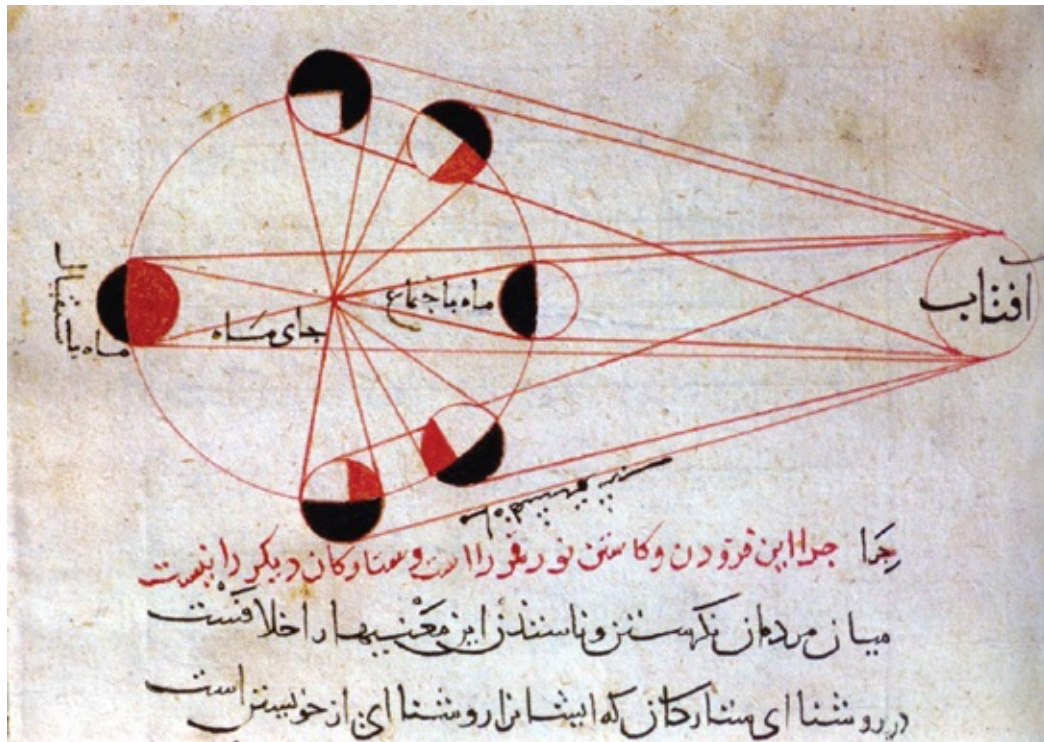 افتاب
ماه باجتماع
جای ماه
ماه باستقبال
چرا چرا این فزودن وکاستن نور قمر را است وستارکان دیکر را نیست
میان مردمان نکرستن وناسندن این معنیها را خلافست
در روشنا ای ستارکان که ایشانرا روشنا ای از خویشتن است